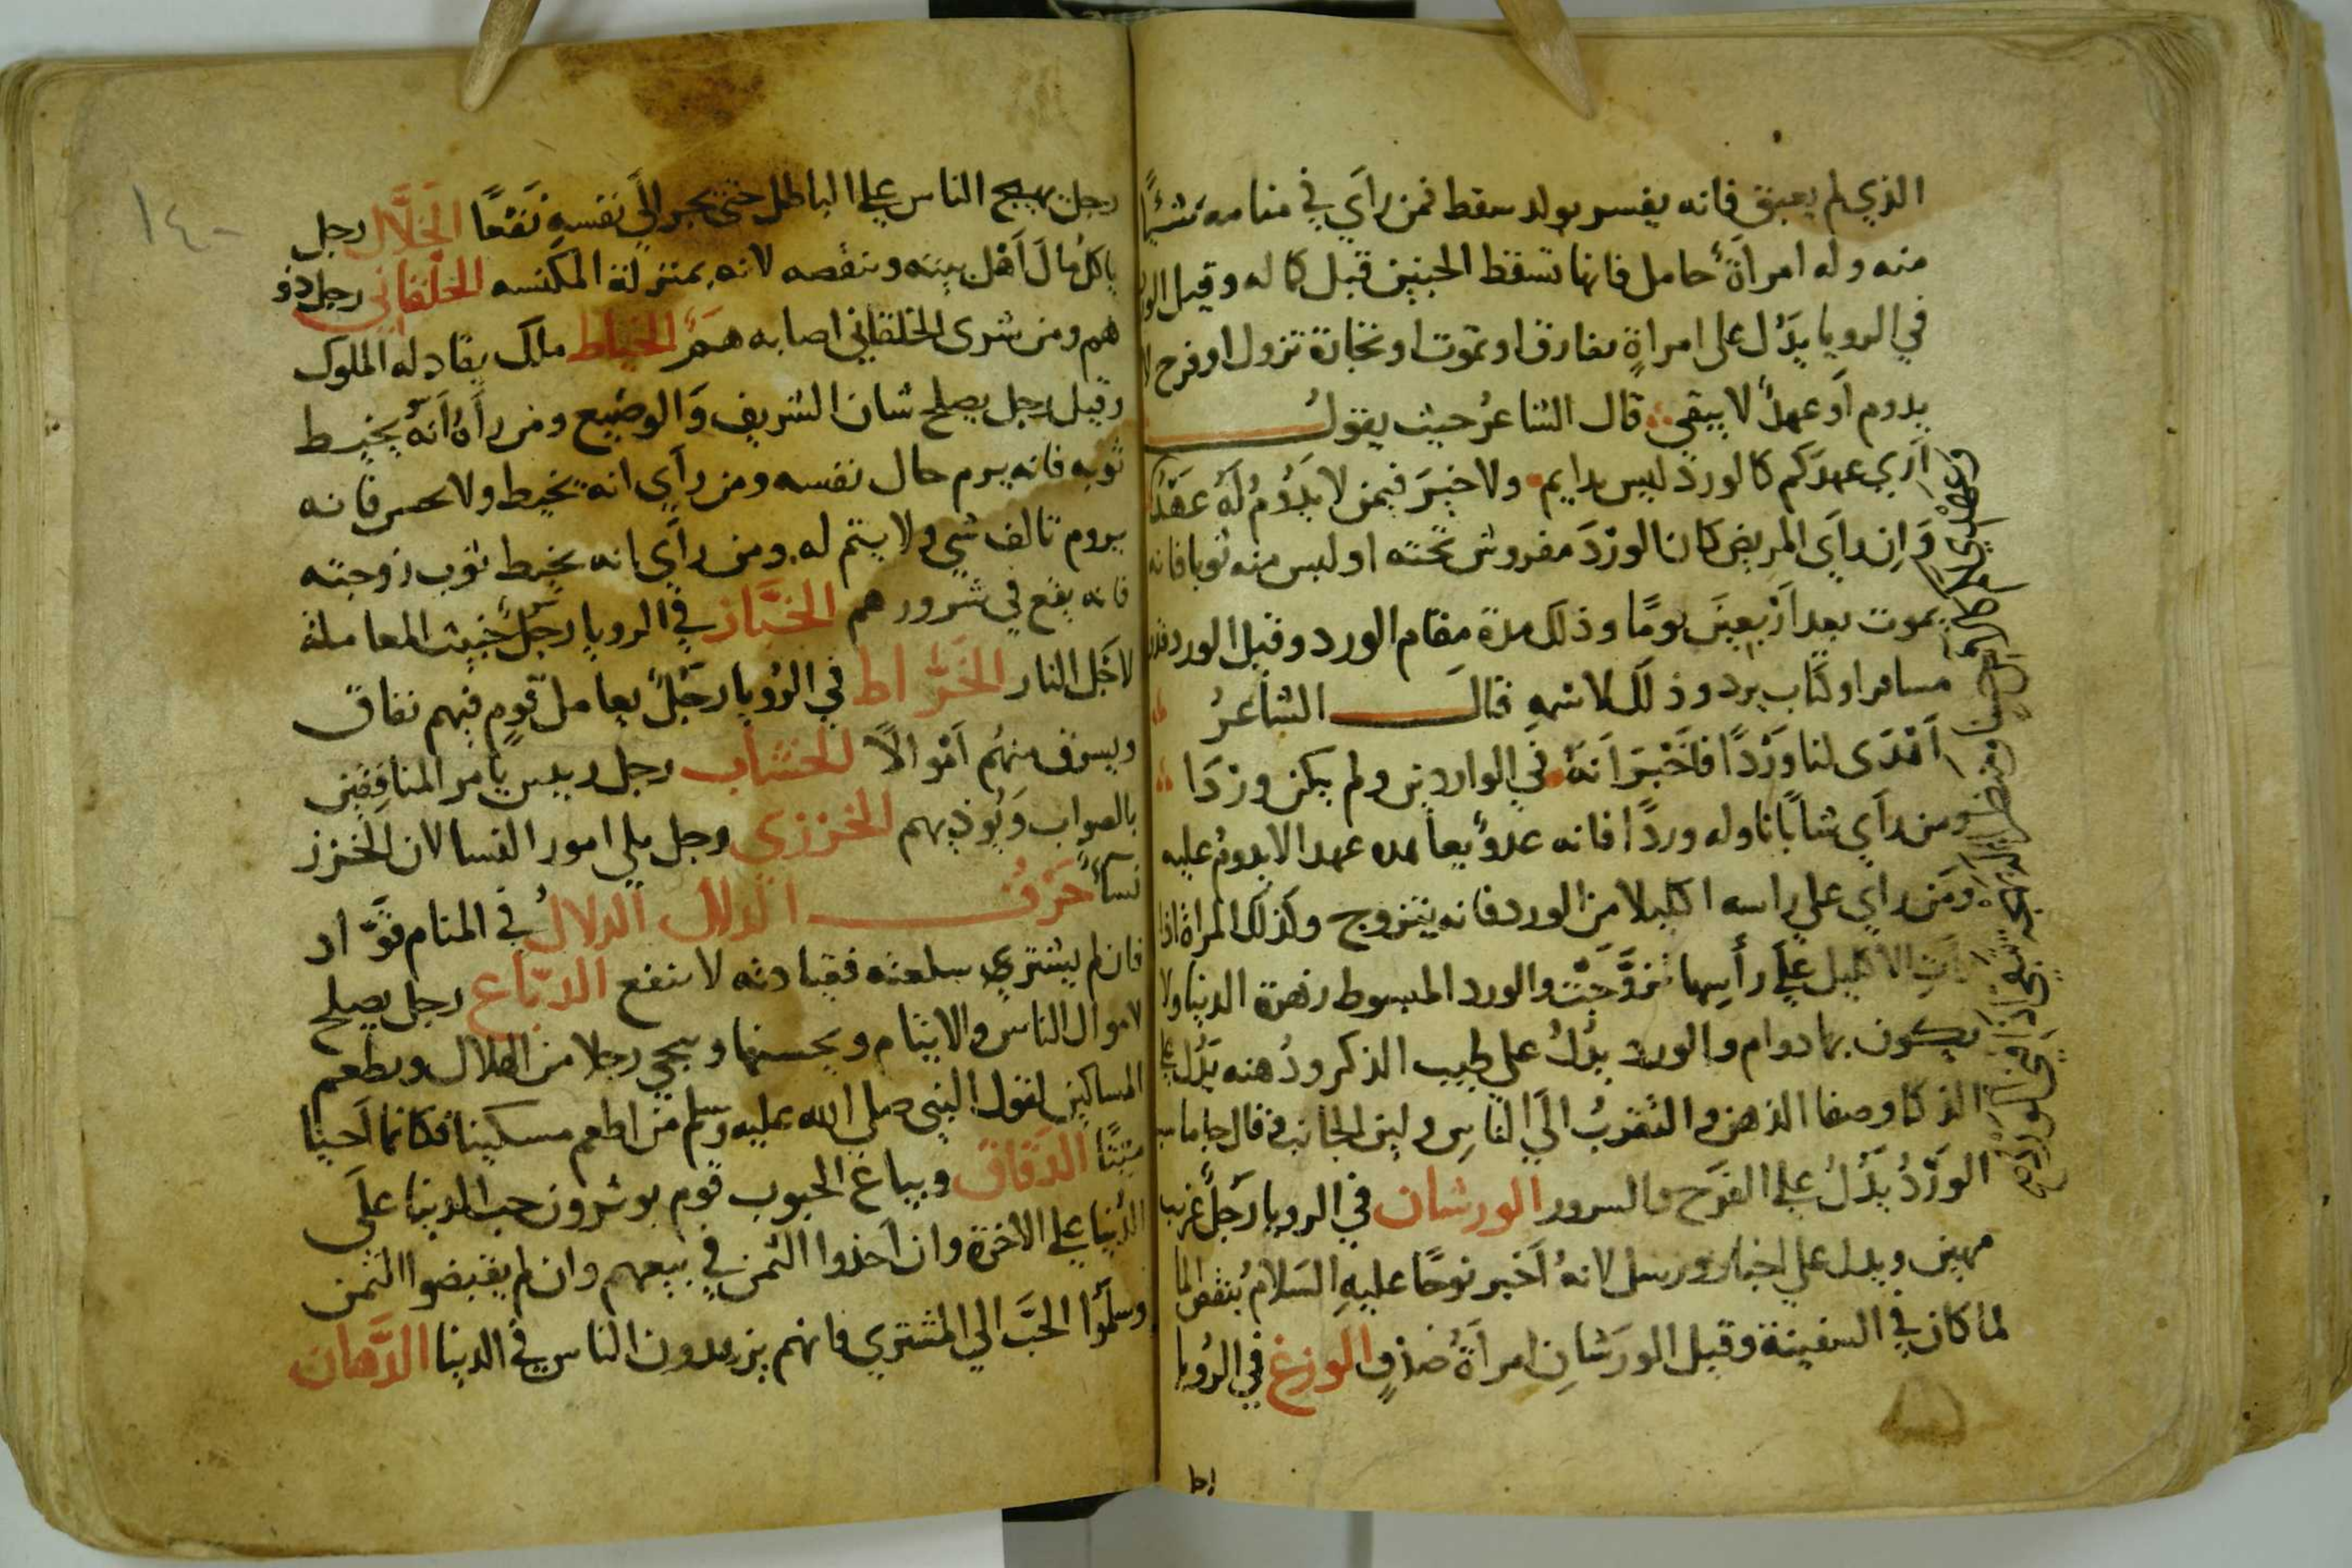 الذي لم يعبق فانه يفسر بولد سقط فمن راَي في منامه شيًا
منه وله امراةٌ حامل فانها تسقط الجنين قبل كماله وقيل الورد
في الرويا يَدُل على امراةٍ تفارق او تموت او تجارة تزول او فرح لا
يدوم اَو عهدٌ لا يبقي قال الشاعرُ حيث يقولُ
اَرَي عهدكم كالورد ليس بدايم ولا خيرَ فيمن لا يَدُومُ لَهُ عَهْدُ
وَاِن راَي المريض كان الورْدَ مفروش تحته او لبس منه ثوبا فانه
يموت بعد اَرْبعينَ يومًا وذلك مدة مقام الورد وقيل الورد قدوم
مسافر او كتاب يرد وذلك لاسمهِ قال الشاعرُ
اَهْدَى لنا وَرْدًا فاَخْبَرَ اَنهُ في الواردين ولم يكن وردَا
ومن راَي شابًا ناوله وردًا فانه عدوٌ يعاهده عهدا لا يدومُ عليه
وَمَن راَي علي راسه اكليلا من الورد فانه يتزوج وكذلك المراة اذا
راَتِ الاكليل علي رأسِها تزوَّجَتْ والورد المبسوط زهرة الدنيا ولا
يكون بها دوام والورد يدلُ علي طيب الذكر ودُهنه يَدُل علي
الذكا وصفا الذهن والتقربُ اليَ الناسِ ولين الجانب وقال جاماسب
الوَرْدُ يَدُلُ علي الفَرَح والسرور الورشان في الرويا رَجلٌ غريب
مهين ويدل علي اخبار ورسل لانهُ اَخبر نوحًا عليهِ السَلامُ بنقص الما
لما كان في السفينة وقيل الورَشانِ امراَةٌ الوزغ في الرُويا
رجل يهيج الناس علي الباطل حتي يجر اليَ نفسهِ نَفْعًا الخَلَّال رجل
ياكلُ مالَ اَهْل بيته وينقصه لانه بمنزلة المكنسه الخلقاني رجل ذو
هم ومن شرى الخلقاني اصابه هَمٌ الخياط ملك يقاد له الملوك
وقيل رجل يصلح شان الشريف وَالوضيع ومن راَهُ اَنهُ يخيط
ثوبه فانه يرم حال نفسه ومن راَي انه يخيط ولا يحسن فانه
يروم تالف شي ولا يتم له ومن راَي انه يخيط ثوب زوجته
فانه يقع في شرور وهم الخبَّاز في الرويا رجلٌ خبيث المعاملة
لاَجَل النار الخَرَّاط في الرُويا رجَلٌ يعامل قومٍ فيهم نفاق
ويسرق منهُم اَمْوالًا الخشاب رجل رييس يَامر المنافِقين
بالصواب وَيُوذيهم الخرزي رجل يلي امور النسا لان الخرز
نساءٌ حَرْفُ الدال الدلالُ في المنام قوَّاد
فان لم يشتري سلعته فقيادته لا تنفع الدبّاغ رجل يصلح
لاموال الناس والايتام ويحسنها ويحيي رجلا من الهلاك ويطعم
المساكين لقول النبي صلي الله عليه وسلم من اطعم مسكينا فكانما اَحيا
ميتًا الدَقاق وبياع الحبوب قوم يوثرون حب الدنيا علَي
الدُنيا علي الاخرة وان اَخذوا الثمن في بيعهم وان لم يقبضوا الثمن
وسلَّموُا الحَبَّ الي المشتري فانهم يزهدون الناس في الدنيا الدَّهان
١٤٠